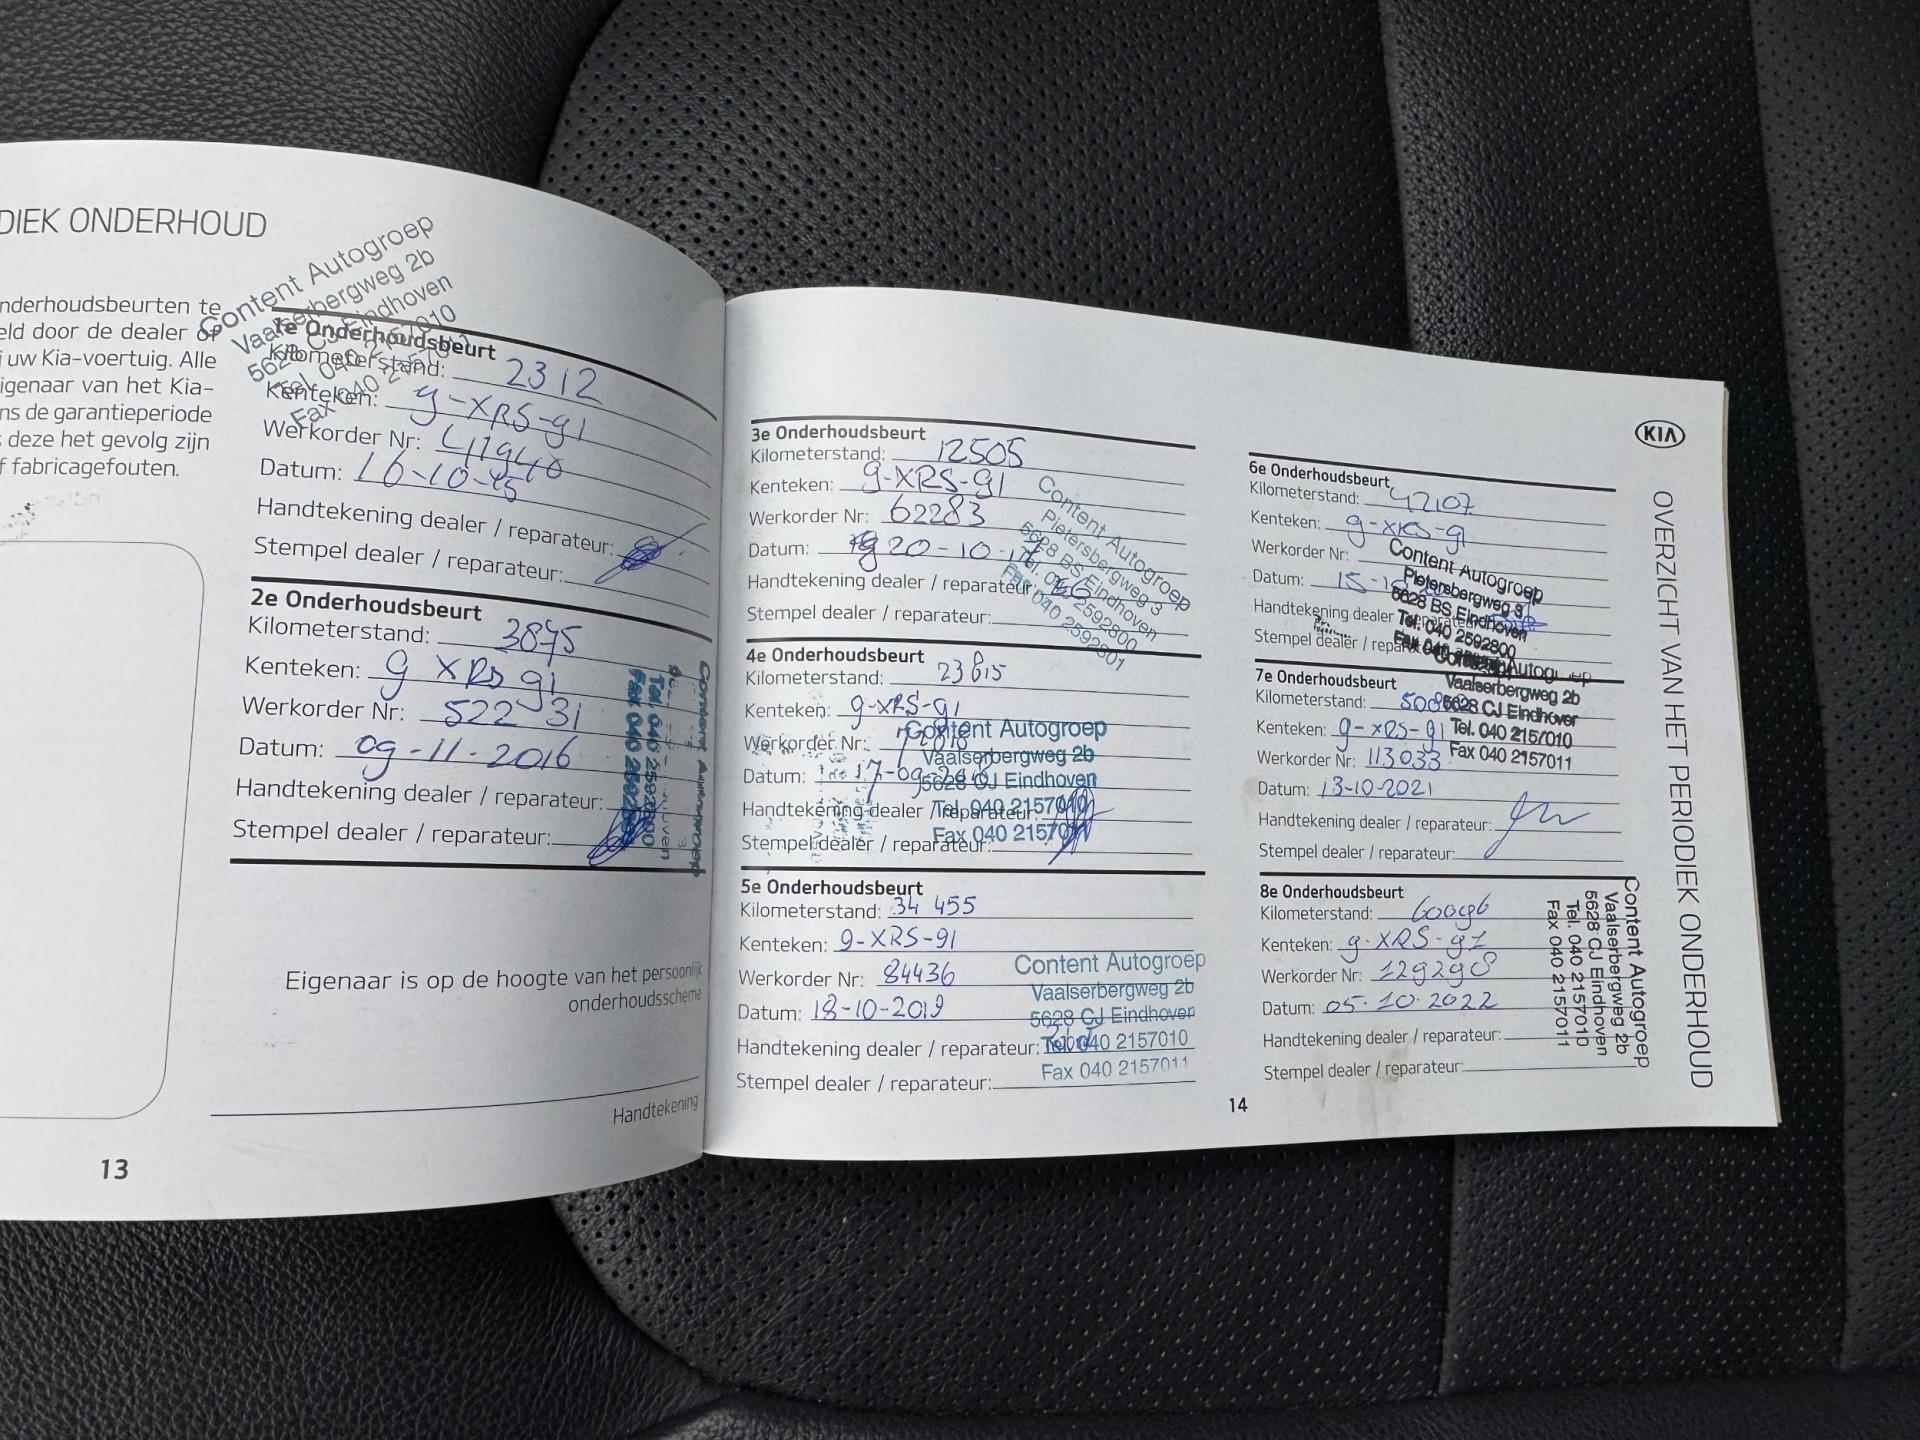 DIEK ONDERHOUD
nderhoudsbeurten te
eld door de dealer of
uw Kia-voertuig. Alle
igenaar van het Kia-
ns de garantieperiode
deze het gevolg zijn
f fabricagefouten.
Content Autogroep
Vaalserbergweg 2b
5628 CJ Eindhoven
1e Onderhoudsbeurt
Kilometerstand: 2312
Kenteken: 9-XRS-91
Werkorder Nr: 41940
Datum: 16-10-15
Handtekening dealer / reparateur:
Stempel dealer / reparateur:
2e Onderhoudsbeurt
Kilometerstand: 3875
Kenteken: 9 XRS 91
Werkorder Nr: 522 31
Datum: 09-11-2016
Handtekening dealer / reparateur:
Stempel dealer / reparateur:
Tel. 040 2592800
Eigenaar is op de hoogte van het persoonlijk
onderhoudsscheme
Handtekening
13
3e Onderhoudsbeurt
Kilometerstand: 12505
Kenteken: 9-XRS-91
Werkorder Nr: 62283
Datum: 20-10-17
Handtekening dealer / reparateur:
Stempel dealer / reparateur:
Content Autogroep
Pietersbergweg 3
5628 BS Eindhoven
Tel. 040 2592800
Fax 040 2592801
4e Onderhoudsbeurt
Kilometerstand: 23815
Kenteken: 9-XRS-91
Werkorder Nr:
Datum: 17-09-2018
Handtekening dealer / reparateur:
Stempel dealer / reparateur:
Content Autogroep
Vaalserbergweg 2b
5628 CJ Eindhoven
Tel. 040 2157010
Fax 040 2157011
5e Onderhoudsbeurt
Kilometerstand: 34 455
Kenteken: 9-XRS-91
Werkorder Nr: 84436
Datum: 18-10-2019
Handtekening dealer / reparateur:
Stempel dealer / reparateur:
Content Autogroep
Vaalserbergweg 2b
5628 CJ Eindhoven
Tel. 040 2157010
Fax 040 2157011
6e Onderhoudsbeurt
Kilometerstand: 42107
Kenteken: 9-XRS-91
Werkorder Nr:
Datum: 15-
Handtekening dealer
Stempel dealer
Content Autogroep
Pietersbergweg 3
5628 BS Eindhoven
Tel. 040 2592800
Fax 040
7e Onderhoudsbeurt
Kilometerstand:
Kenteken: 9-XRS-91
Werkorder Nr: 113033
Datum: 13-10-2021
Handtekening dealer / reparateur:
Stempel dealer / reparateur:
Autogroep
Vaalserbergweg 2b
5628 CJ Eindhoven
Tel. 040 2157010
Fax 040 2157011
8e Onderhoudsbeurt
Kilometerstand: 60096
Kenteken: 9-XRS-91
Werkorder Nr: 129298
Datum: 05-10-2022
Handtekening dealer / reparateur:
Stempel dealer / reparateur:
Content Autogroep
Vaalserbergweg 2b
5628 CJ Eindhoven
Tel. 040 2157010
Fax 040 2157011
14
KIA
OVERZICHT VAN HET PERIODIEK ONDERHOUD